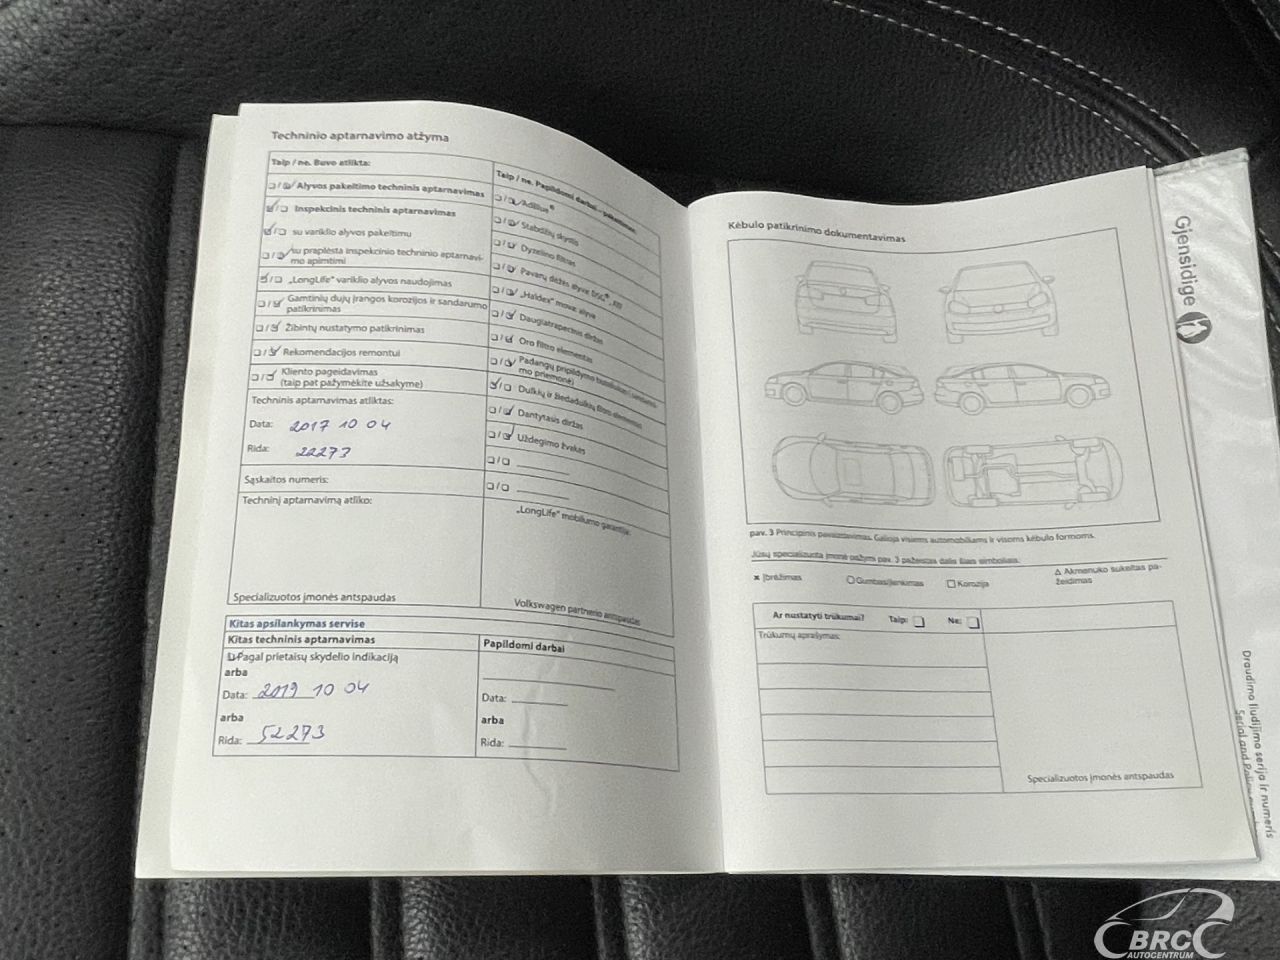 Techninio aptarnavimo atžyma
Taip / ne. Buvo atlikta:
Alyvos pakeitimo techninis aptarnavimas
Inspekcinis techninis aptarnavimas
su variklio alyvos pakeitimu
su praplėsta inspekcinio techninio aptarnavi-
mo apimtimi
„LongLife“ variklio alyvos naudojimas
Gamtinių dujų įrangos korozijos ir sandarumo
patikrinimas
Žibintų nustatymo patikrinimas
Rekomendacijos remontui
Kliento pageidavimas
(taip pat pažymėkite užsakyme)
Techninis aptarnavimas atliktas:
Data: 2017 10 04
Rida: 22273
Sąskaitos numeris:
Techninį aptarnavimą atliko:
Specializuotos įmonės antspaudas
Taip / ne. Papildomi darbai - pakeitimas:
AdBlue®
Stabdžių skystis
Dyzelino filtras
Pavarų dėžės alyva DSG®
„Haldex“ mova: alyva
Daugiatrapecinis diržas
Oro filtro elementas
Padangų pripildymo
mo priemonė)
Dulkių ir žiedadulkių filtro elementas
Dantytasis diržas
Uždegimo žvakės
„LongLife“ mobilumo garantija:
Volkswagen partnerio antspaudas
Kitas apsilankymas servise
Kitas techninis aptarnavimas
Pagal prietaisų skydelio indikaciją
arba
Data: 2019 10 04
arba
Rida: 52273
Papildomi darbai
Data:
arba
Rida:
Kėbulo patikrinimo dokumentavimas
pav. 3 Principinis pavaizdavimas. Galioja visiems automobiliams ir visoms kėbulo formoms.
Jūsų specializuota įmonė pažymi pav. 3 pažeistas dalis šiais simboliais:
x Įbrėžimas
Gumbas/įlenkimas
Korozija
Akmenuko sukeltas pa-
žeidimas
Ar nustatyti trūkumai? Taip: Ne:
Trūkumų aprašymas:
Specializuotos įmonės antspaudas
Gjensidige
Draudimo liudijimo serija ir numeris
Serial and
BRC
AUTOCENTRUM